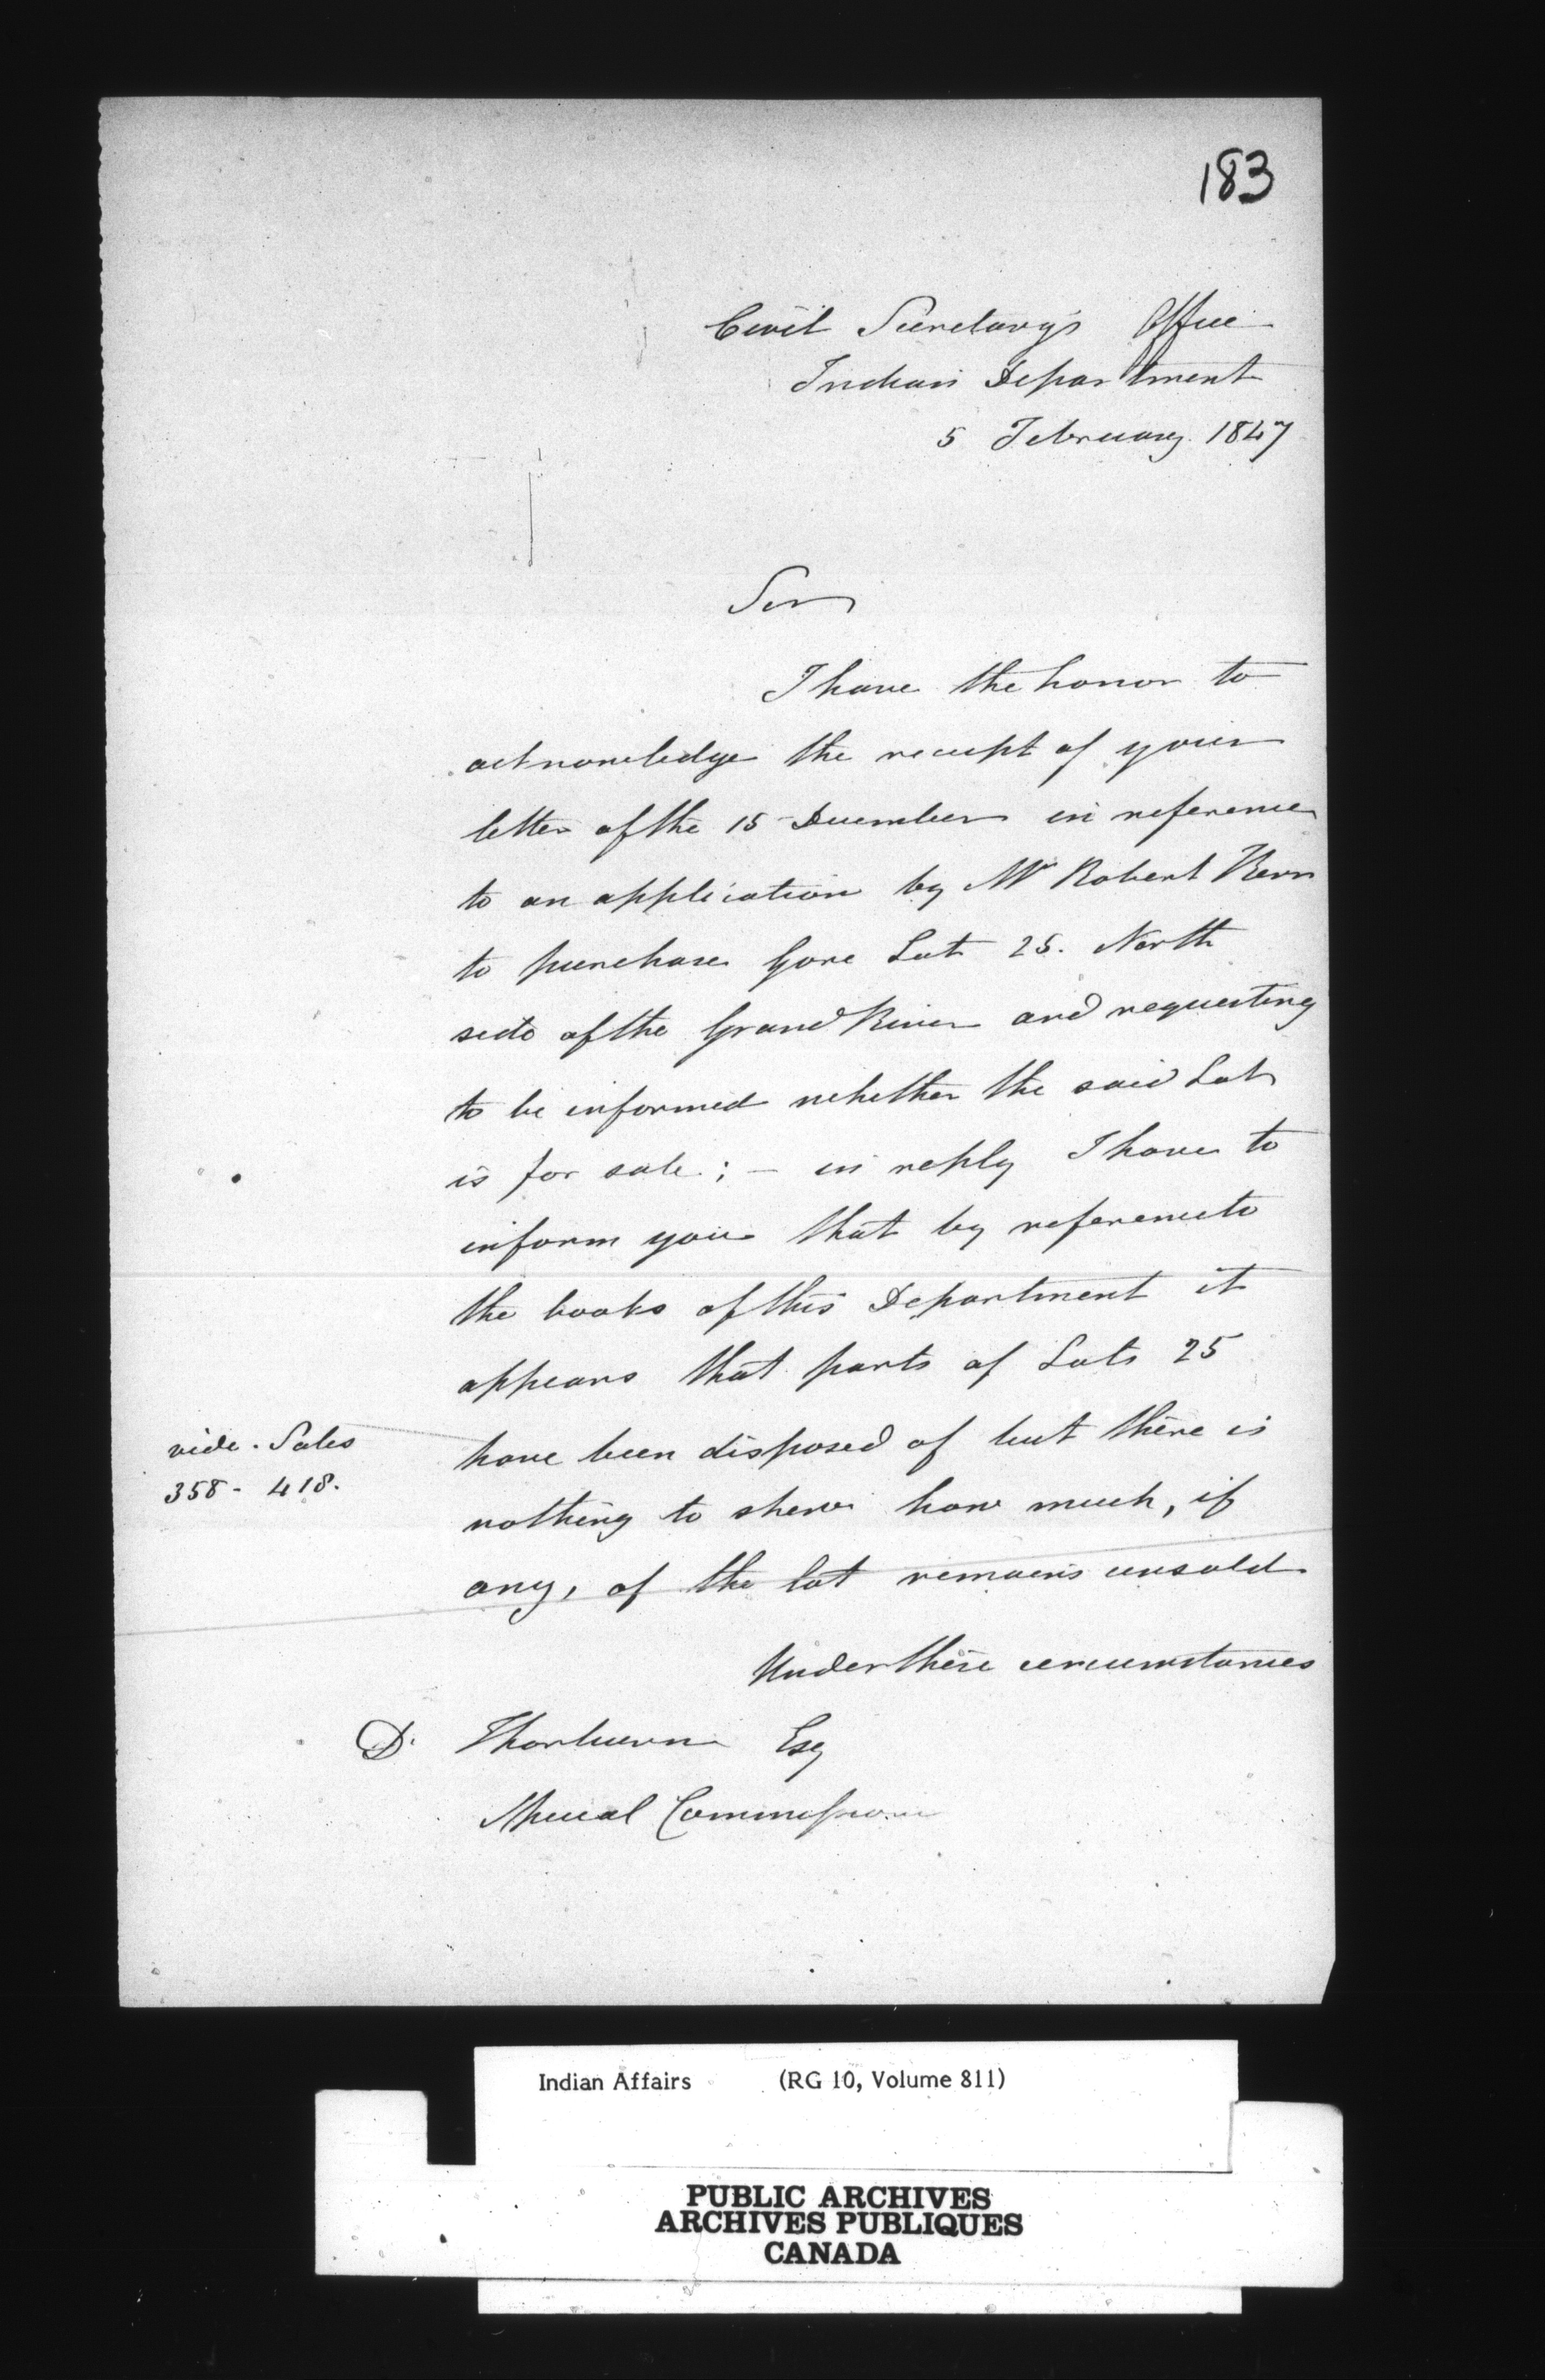 183
Civil Secretary's Office
Indian Department
5 February 1847
Sir
I have the honor to
acknowledge the receipt of your
letter of the 15 December in reference
to an application by Mr Robert Kerr
to purchase Gore Lot 25. North
side of the Grand River and requesting
to be informed whether the said Lot
is for sale; – in reply I have to
inform you that by reference to
the books of this Department it
appears that parts of Lots 25
have been disposed of but there is
nothing to shew how much, if
any, of the lot remains unsold.
vide. Sales
358 - 418.
Under these circumstances
D. Thorburn Esq
Special Commissioner
Indian Affairs (RG 10, Volume 811)
PUBLIC ARCHIVES
ARCHIVES PUBLIQUES
CANADA